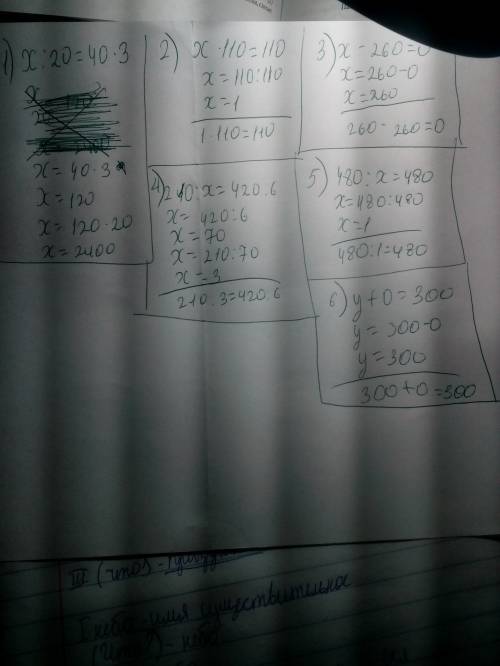 1) x : 20 = 40 · 3
x = 40 · 3
x = 120
x = 120 · 20
x = 2400
2) x · 110 = 110
x = 110 : 110
x = 1
1 · 110 = 110
3) x - 260 = 0
x = 260 - 0
x = 260
260 - 260 = 0
4) 210 : x = 420 : 6
x = 420 : 6
x = 70
x = 210 : 70
x = 3
210 : 3 = 420 : 6
5) 480 : x = 480
x = 480 : 480
x = 1
480 : 1 = 480
6) y + 0 = 300
y = 300 - 0
y = 300
300 + 0 = 300
III (что) -
имя существительное
(Что?) - небо